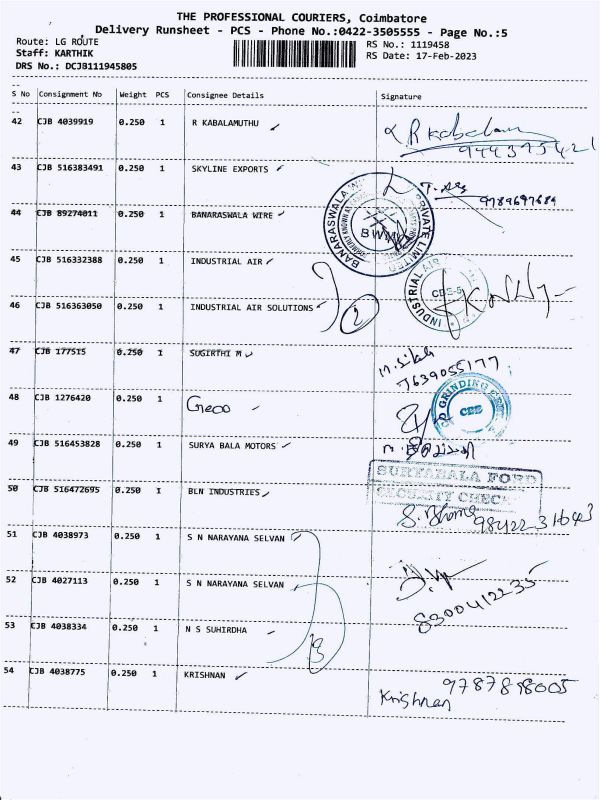 THE PROFESSIONAL COURIERS, Coimbatore
Delivery Runsheet - PCS - Phone No.:0422-3505555 - Page No.:5
Route: LG ROUTE
RS No.: 1119458
Staff: KARTHIK
RS Date: 17-Feb-2023
DRS No.: DCJB111945805
S No Consignment No Weight PCS Consignee Details Signature
42 CJB 4039919 0.250 1 R KABALAMUTHU
43 CJB 516383491 0.250 1 SKYLINE EXPORTS
9789697689
44 CJB 89274011 0.250 1 BANARASWALA WIRE
BANARASWALA PRIVATE LIMITED
BWM
45 CJB 516332388 0.250 1 INDUSTRIAL AIR
INDUSTRIAL AIR
CBE-5
46 CJB 516363050 0.250 1 INDUSTRIAL AIR SOLUTIONS
2
47 CJB 177515 0.250 1 SUGIRTHI M
7639055177
48 CJB 1276420 0.250 1 Geoo
GRINDING
CBE
49 CJB 516453828 0.250 1 SURYA BALA MOTORS
SURYABALA FORD
SECURITY CHECK
50 CJB 516472695 0.250 1 BLN INDUSTRIES
9842231643
51 CJB 4038973 0.250 1 S N NARAYANA SELVAN
52 CJB 4027113 0.250 1 S N NARAYANA SELVAN
8300412235
53 CJB 4038334 0.250 1 N S SUHIRDHA
3
54 CJB 4038775 0.250 1 KRISHNAN
9787898005
Krishnan